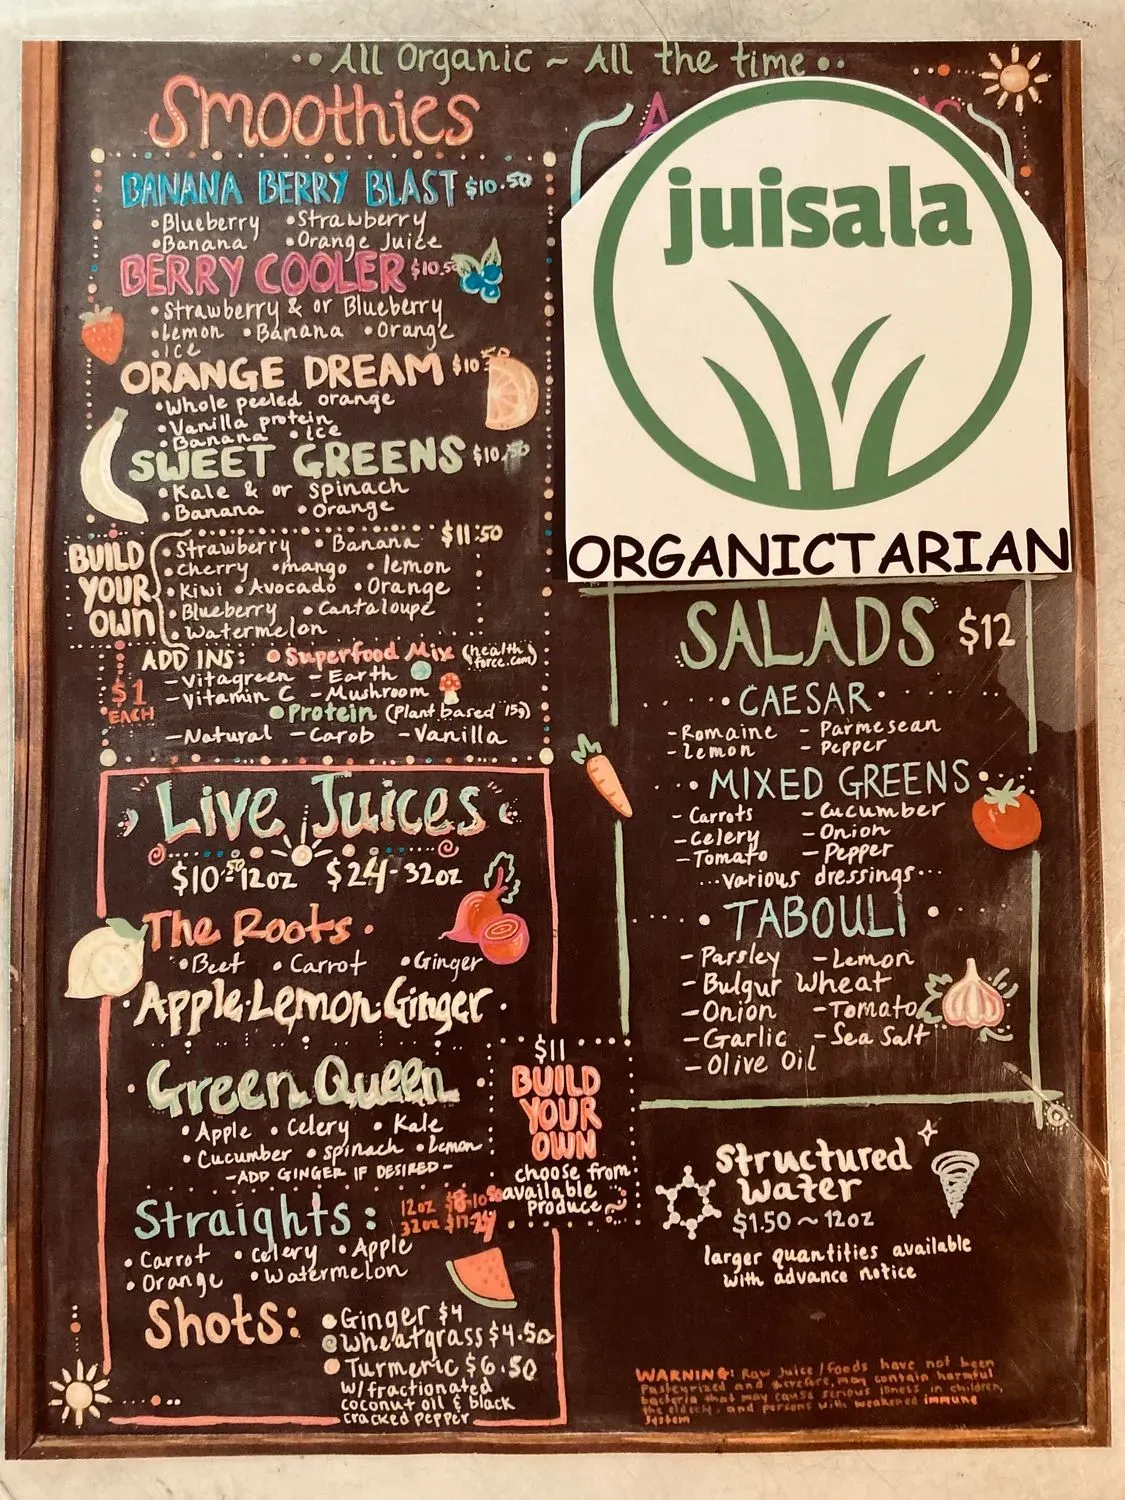 All Organic ~ All the time
Smoothies
BANANA BERRY BLAST $10.50
•Blueberry •Strawberry
•Banana •Orange Juice
BERRY COOLER $10.50
•Strawberry & or Blueberry
•Lemon •Banana •Orange
•ice
ORANGE DREAM $10.50
•Whole peeled orange
•Vanilla protein
•Banana •ice
SWEET GREENS $10.50
•Kale & or spinach
•Banana •Orange
BUILD YOUR OWN $11.50
•Strawberry •Banana
•Cherry •mango •lemon
•Kiwi •Avocado •Orange
•Blueberry •Cantaloupe
•Watermelon
ADD INS: •Superfood Mix (healthforce.com)
$1 EACH
-Vitagreen -Earth
-Vitamin C -Mushroom
•Protein (Plant based 15g)
-Natural -Carob -Vanilla
Live Juices
$10.50 12oz $24-32oz
The Roots
•Beet •Carrot •Ginger
Apple•Lemon•Ginger
Green Queen
•Apple •Celery •Kale
•Cucumber •spinach •Lemon
-ADD GINGER IF DESIRED-
$11
BUILD
YOUR
OWN
choose from
available
produce
Straights:
12oz $8-10.50
32oz $17-24
•Carrot •Celery •Apple
•Orange •Watermelon
Shots:
•Ginger $4
•Wheatgrass $4.50
•Turmeric $6.50
w/fractionated
coconut oil & black
cracked pepper
juisala
ORGANICTARIAN
SALADS $12
CAESAR
-Romaine -Parmesean
-Lemon -Pepper
MIXED GREENS
-Carrots -Cucumber
-Celery -Onion
-Tomato -Pepper
...various dressings...
TABOULI
-Parsley -Lemon
-Bulgur Wheat
-Onion -Tomato
-Garlic -Sea Salt
-Olive Oil
Structured
Water
$1.50 ~ 12oz
larger quantities available
with advance notice
WARNING: Raw Juice/foods have not been
Pasteurized and therefore, may contain harmful
bacteria that may cause serious illness in children,
the elderly, and persons with weakened immune
system